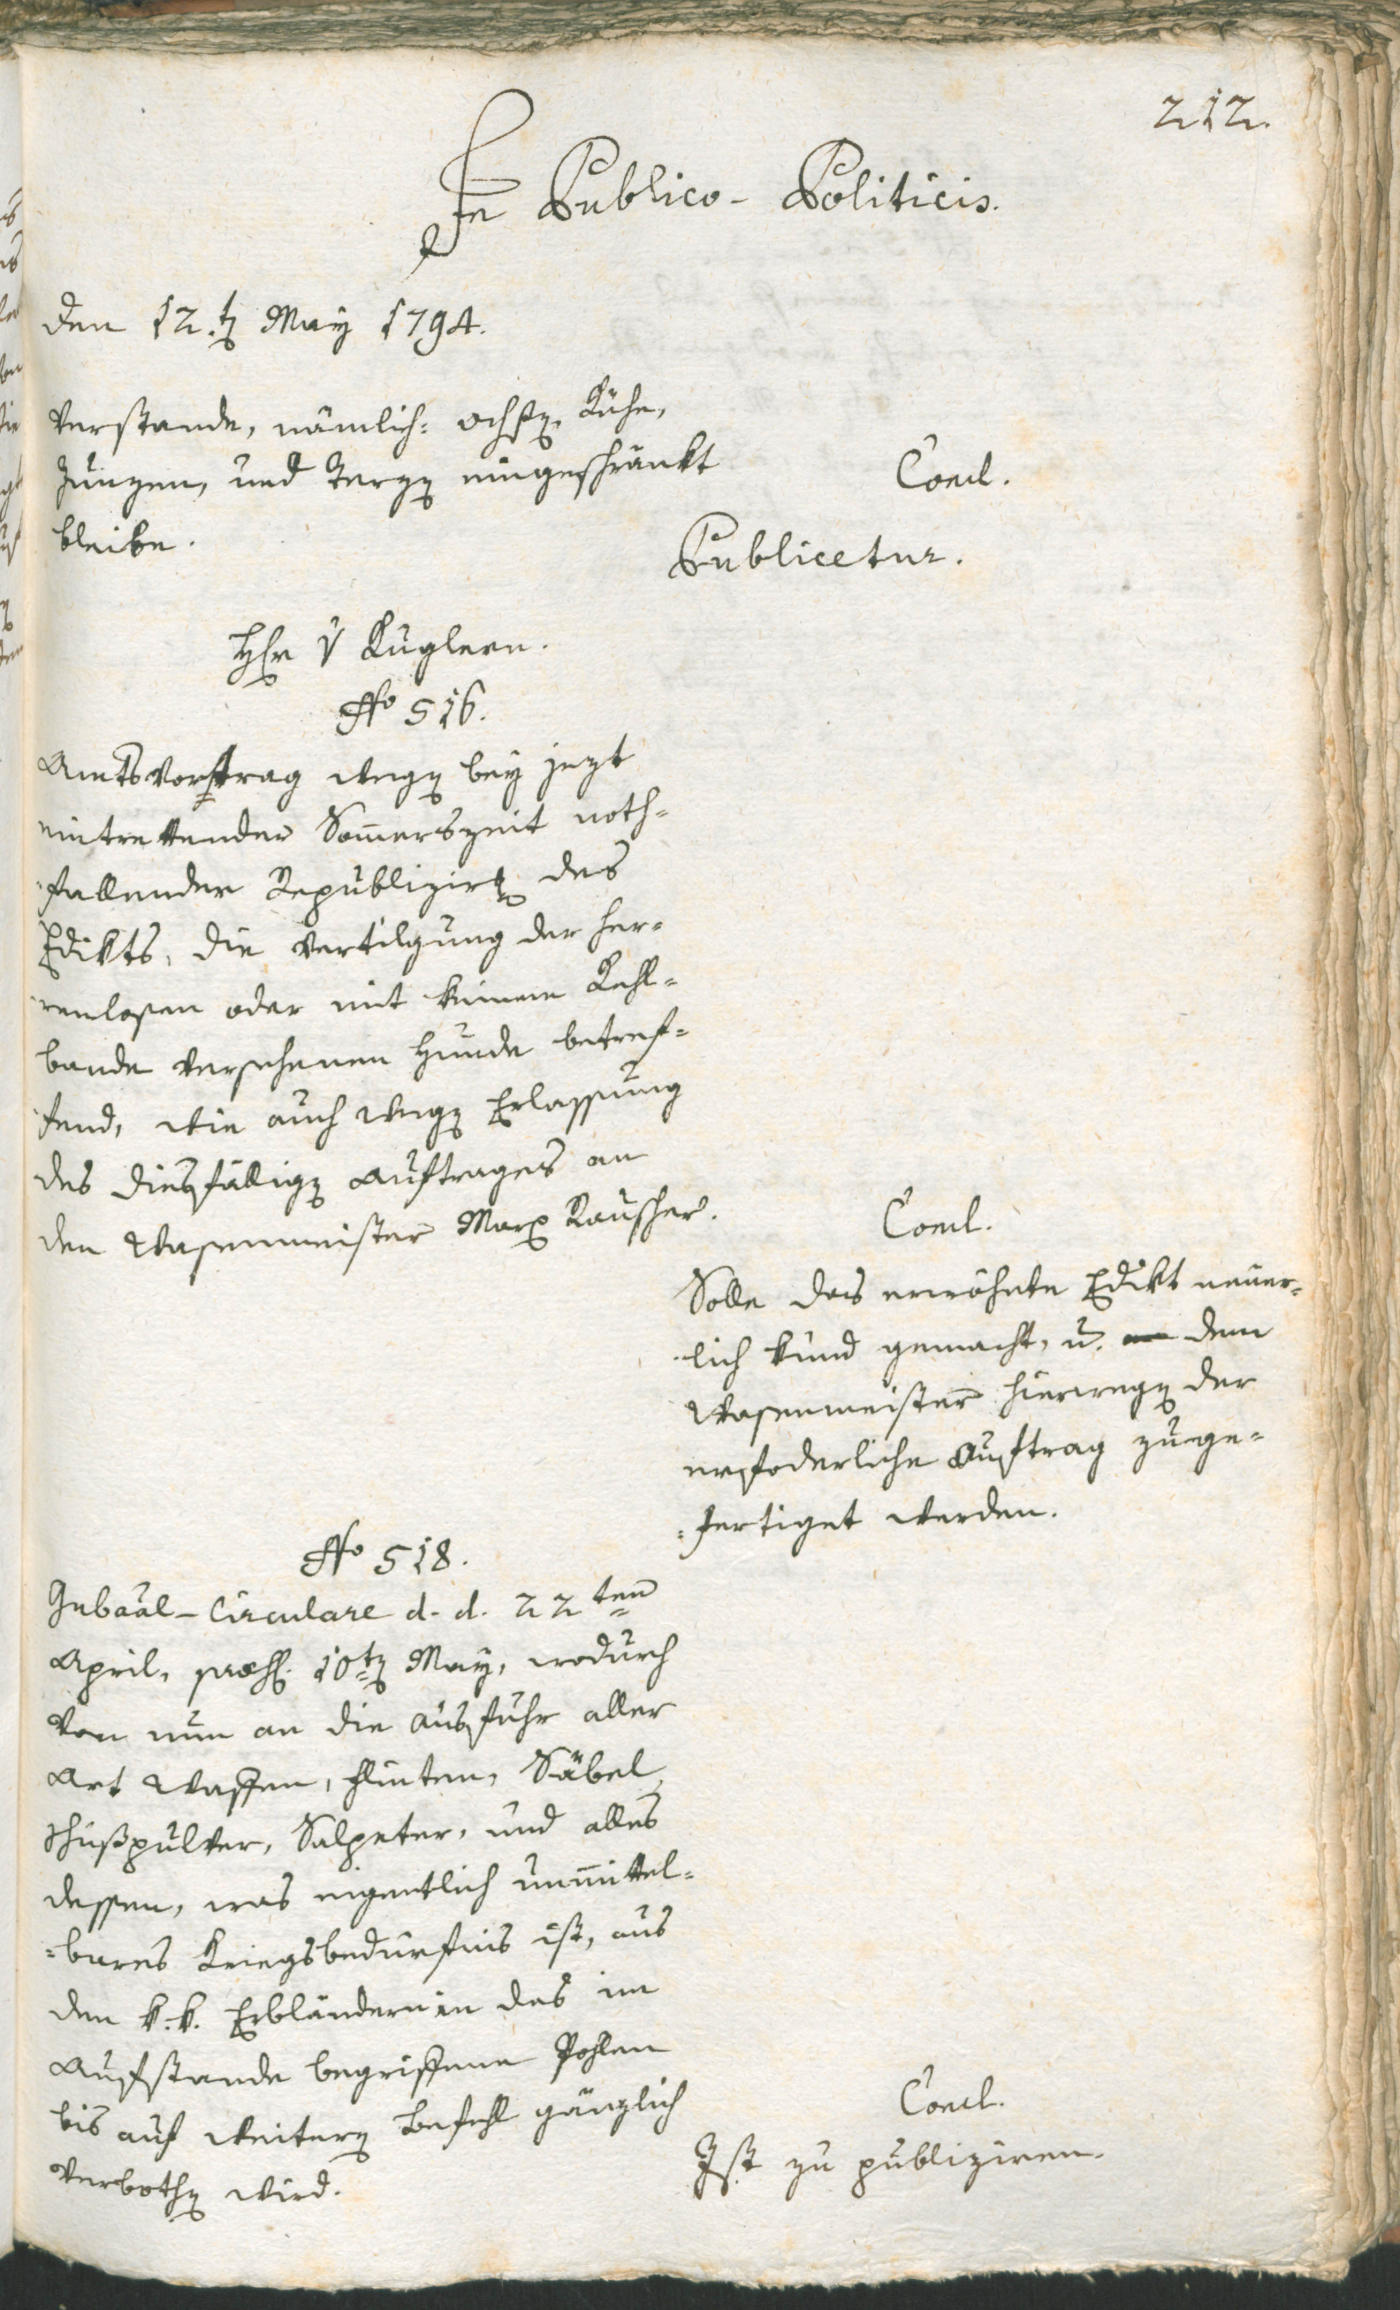 212.
In Publico-Politicis.
den 12.t May 1794.
Verstande, nämlich: ochsen, Kühe,
Junzen, und Terzen eingeschränkt
bleibe.
Concl.
Publicetur.
Hr v Kuglern.
No 516.
Amtsvortrag wegen bey jezt
eintrettender Som̄erszeit noth-
fallender Republizirung des
Edikts, die Vertilgung der her-
renlosen oder mit keinem Kehl-
bande versehenen Hunde betref-
fend, wie auch wegen Erlassung
des diesfälligen Auftrages an
den Wasenmeister Marx Rauscher.
Concl.
Solle das erwähnte Edikt neuer-
lich kund gemacht, u. dem
Wasenmeister hierwegen der
erfoderliche Auftrag zuge-
fertiget werden.
No 518.
Gubaal-Circulare d. d. 22ten
April, præs. 10ten May, wodurch
von nun an die Ausfuhr aller
Art Waffen, Flinten, Säbel,
Schußpulver, Salpeter, und alles
dessen, was eigentlich unmittel-
bares Kriegsbedürfnis ist, aus
den k. k. Erbländern in das im
Aufstande begriffene Pohlen
bis auf weitern Befehl gänzlich
verbothen wird.
Concl.
Ist zu publiziren.